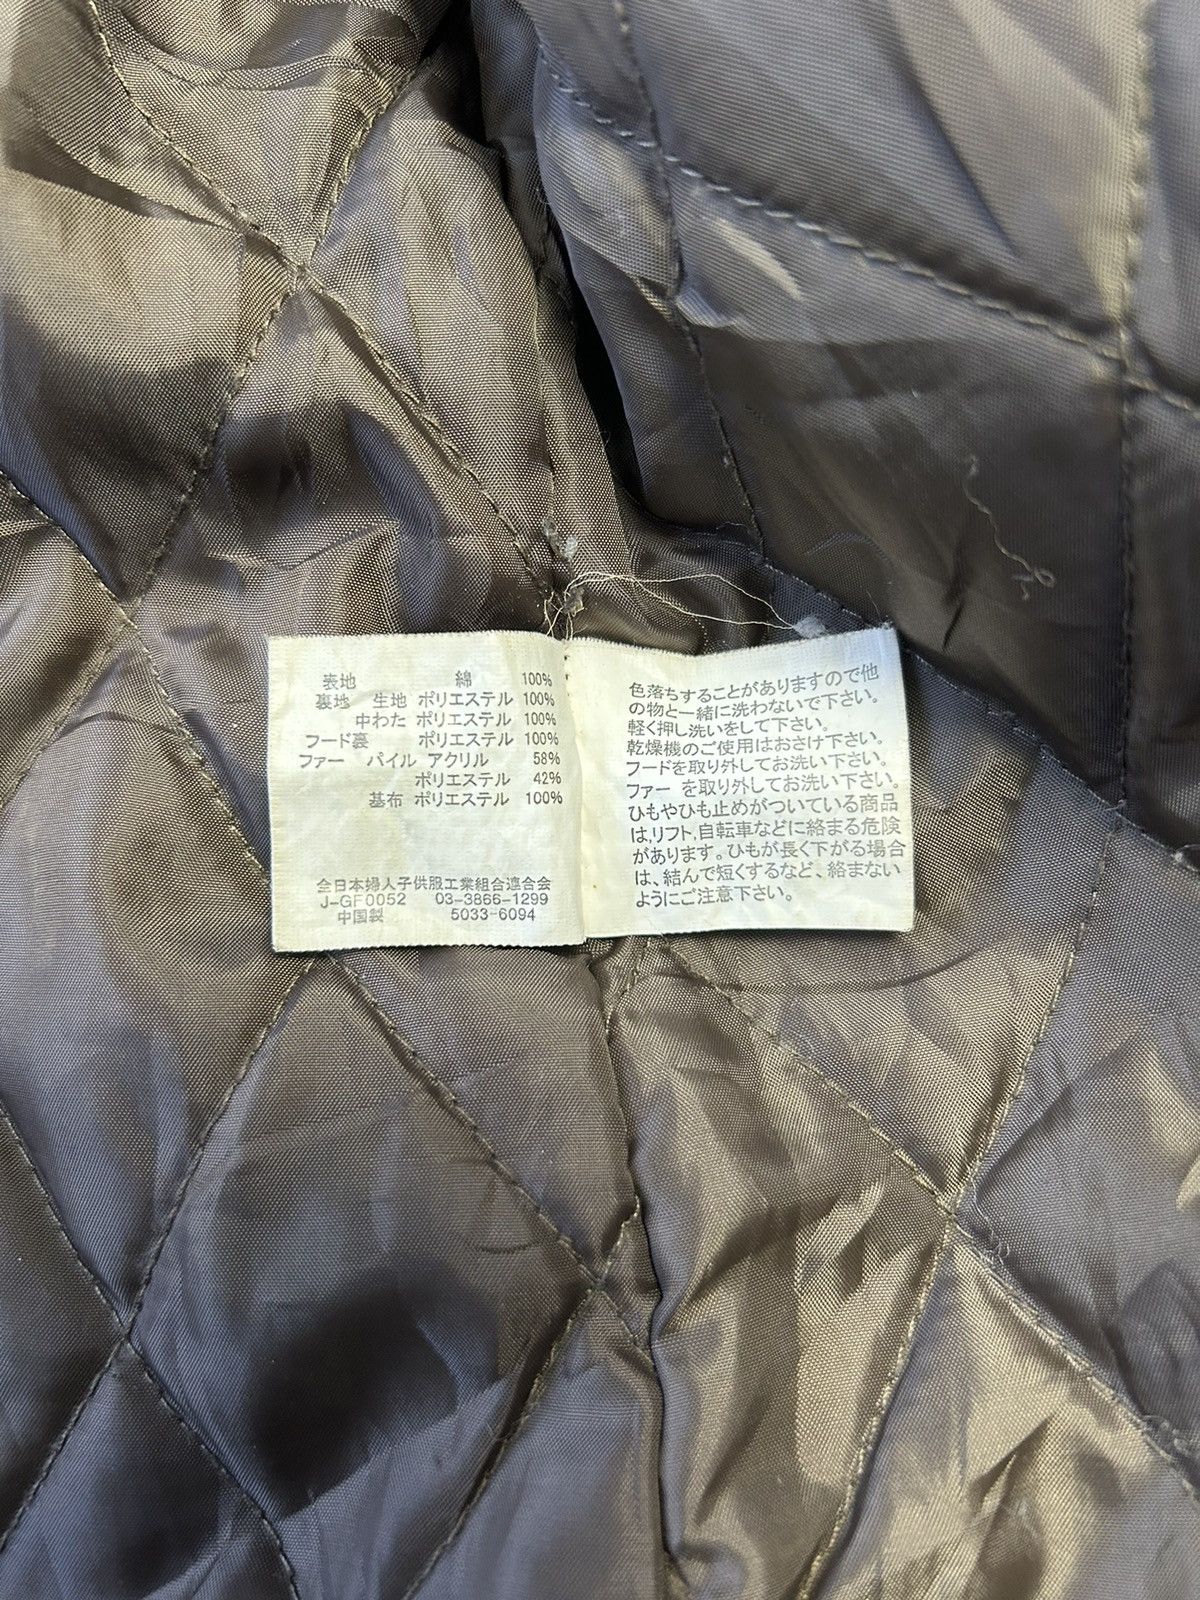 表地 綿 100%
裏地 生地 ポリエステル 100%
中わた ポリエステル 100%
フード裏 ポリエステル 100%
ファー パイル アクリル 58%
ポリエステル 42%
基布 ポリエステル 100%
全日本婦人子供服工業組合連合会
J-GF0052 03-3866-1299
中国製 5033-6094
色落ちすることがありますので他
の物と一緒に洗わないで下さい。
軽く押し洗いをして下さい。
乾燥機のご使用はおさけ下さい。
フードを取り外してお洗い下さい。
ファーを取り外してお洗い下さい。
ひもやひも止めがついている商品
は、リフト、自転車などに絡まる危険
があります。ひもが長く下がる場合
は、結んで短くするなど、絡まない
ようにご注意下さい。